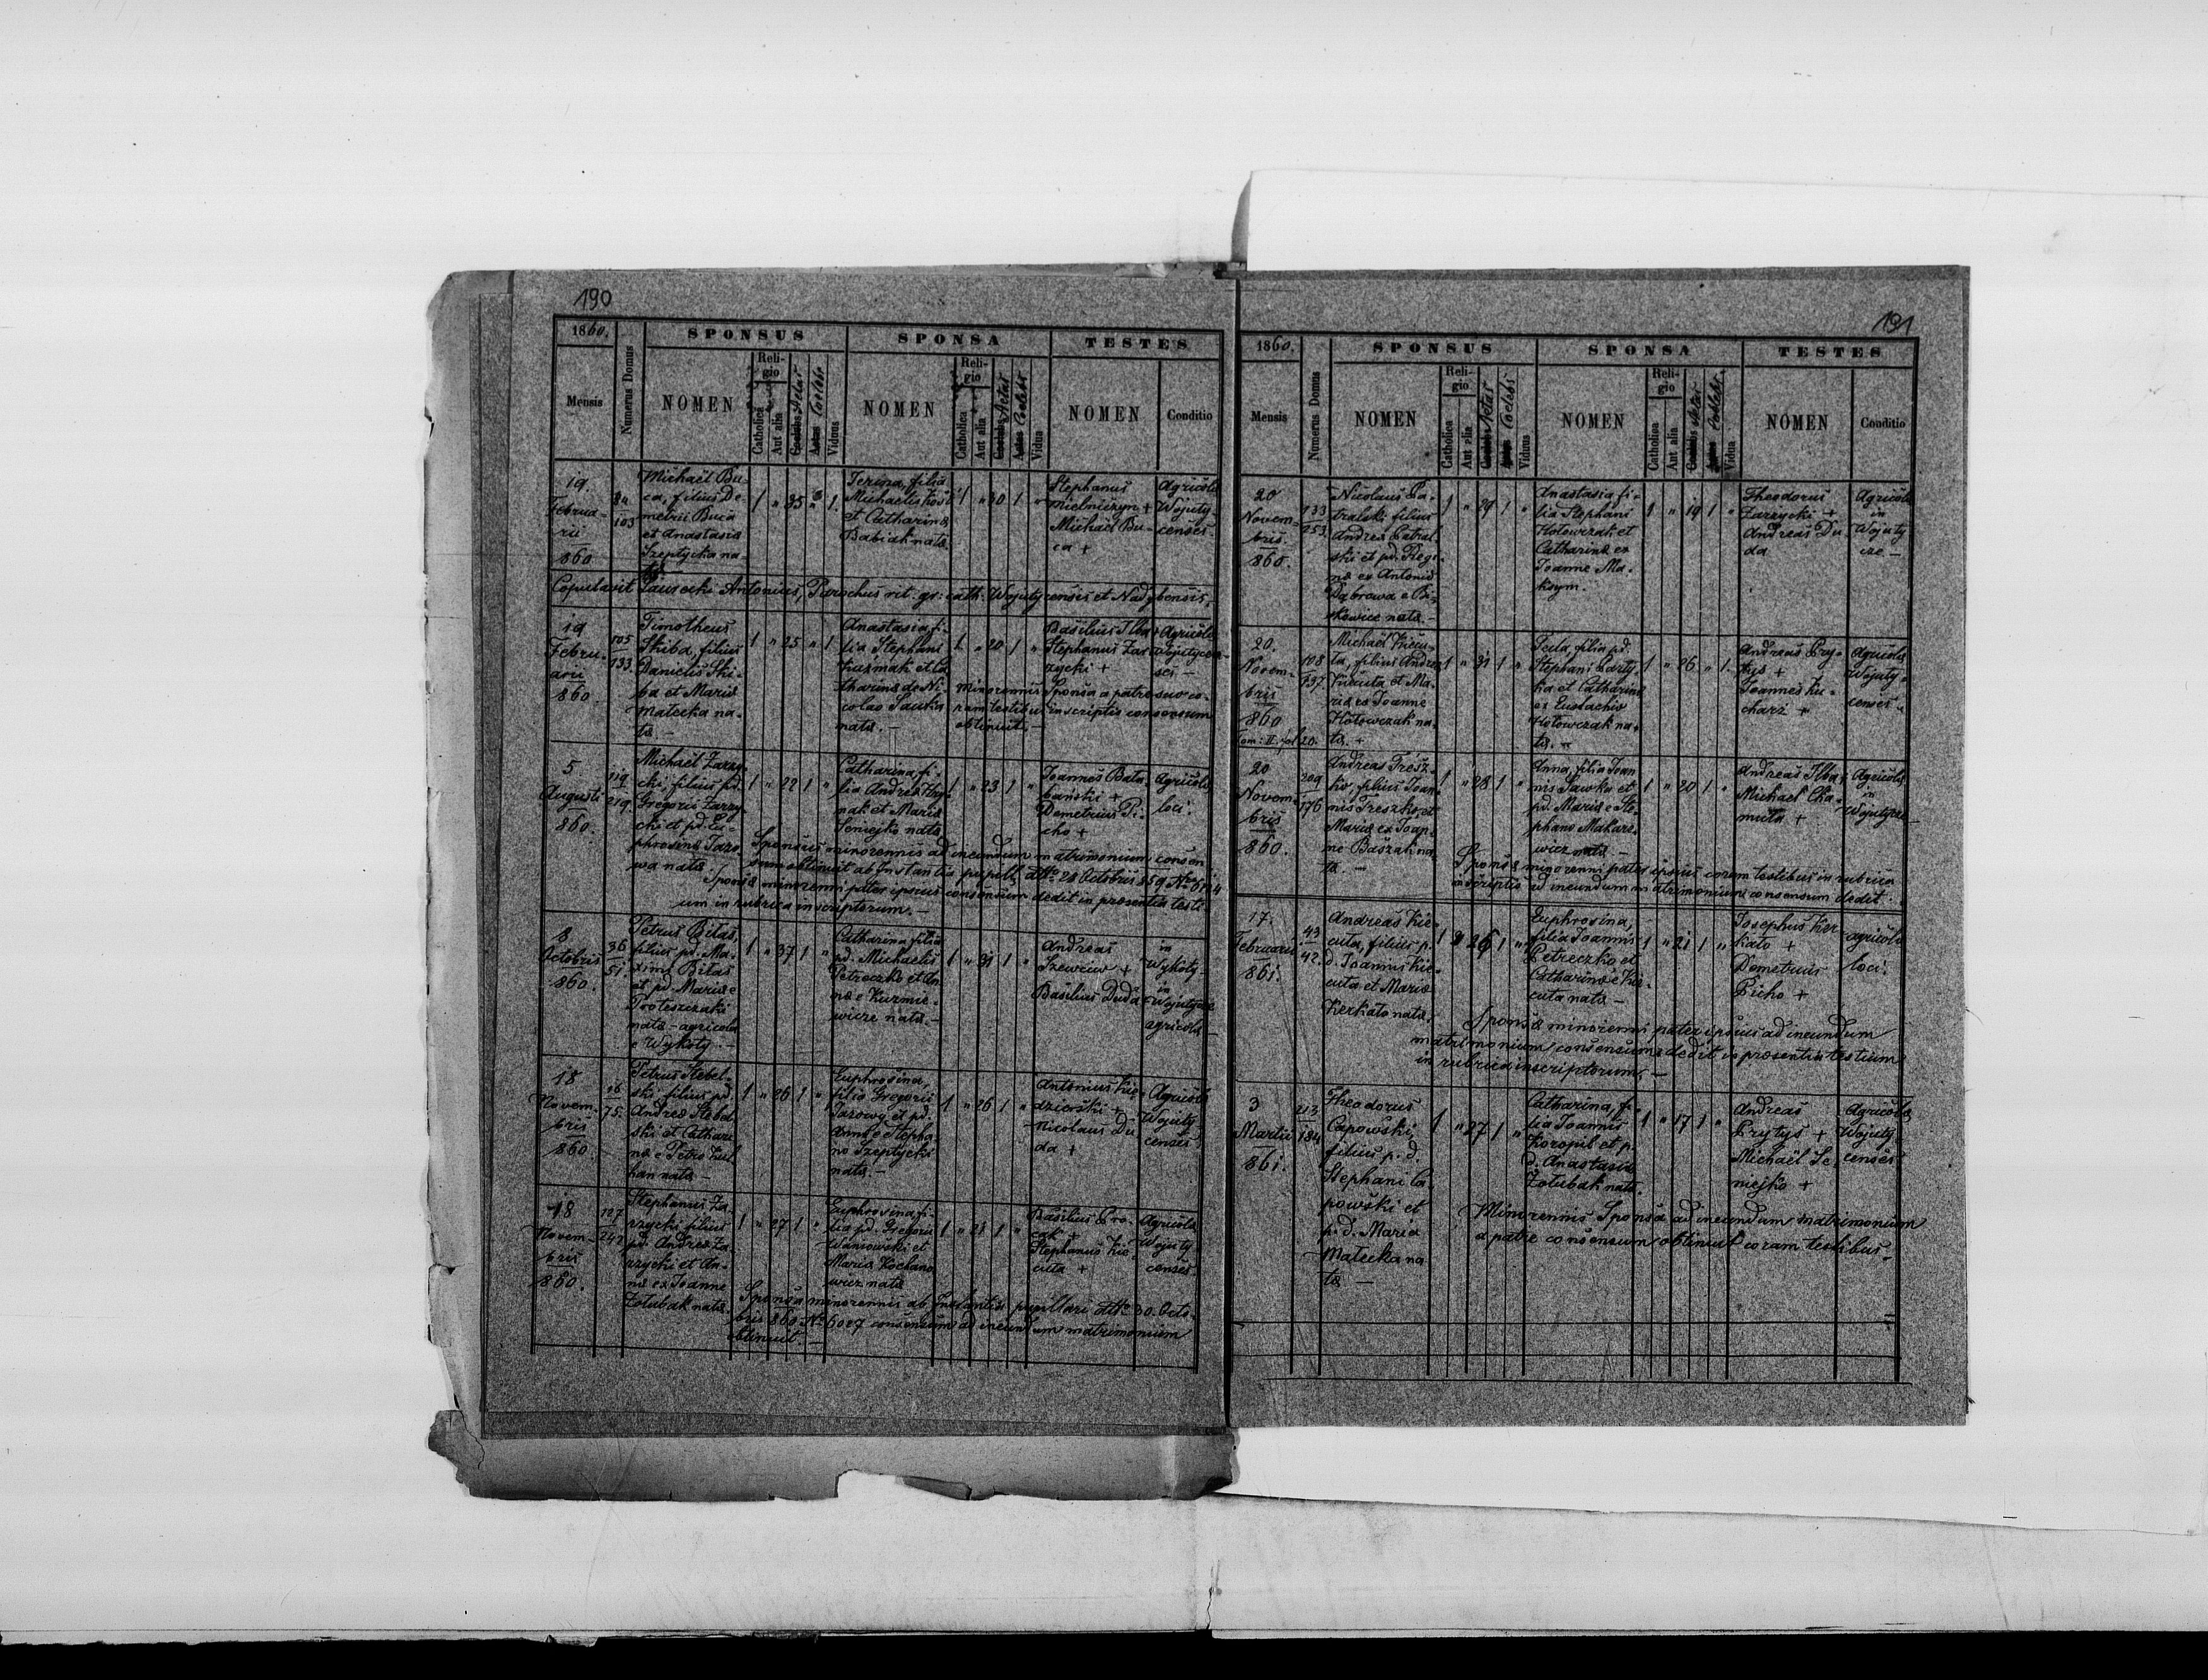 190
1860.
Mensis
Numerus Domus
SPONSUS
NOMEN
Religio
Catholica
Aut alia
Aetas
Coelebs
Viduus
SPONSA
NOMEN
Religio
Catholica
Aut alia
Aetas
Coelebs
Vidua
TESTES
NOMEN
Conditio
19.
Februa-
rii
860
84
103
Michaël Bu-
ca, filius De-
metrii Buca
et Anastasia
Szeptycka na-
ta
1 " 35 " 1.
filia
Michaelis
et Catharina
Babiak nata
1 " 30 1 "
Stephanus
Mielniczyn +
Michaël Bu-
ca +
Agricola
Wojuty-
censes
Copulavit Antonius, Parochus rit: gr: cath: Wojutycensis et Nadybensis.
19
Febru-
arii
860
105
133
Timotheus
Skiba, filius
Danielis Ski-
ba et Maria
Matecka na-
ta -
1 " 25 " 1
Anastasia fi-
lia Stephani
Kuśmak et Ca-
tharina de Ni-
colao Sawka
nata. -
1. " 20 1 "
Basilius Ilba +
Stephanus Zar-
zycki +
Agricola
Wojutycen-
ses -
Minorennis Sponsa a patre suo co-
ram testibus inscriptis consensum
obtinuit. -
5
Augusti
860.
119
219
Michaël Zarzy-
cki, filius pd.
Gregorii Zarzy-
cki et pd. Eu-
phrosina Jaro-
wa nata
1 " 22 1 "
Catharina fi-
lia Andrea Hry-
nak et Maria
Seniejko nata
1 " 23 1 "
Joannes Bata-
bański +
Demetrius Pi-
cho +
Agricola
loci.
Sponsus minorennis ad ineundum matrimonium consen-
sum obtinuit ab Instantia pupill. dtto 28 Octobris 859 No
Sponsa minorenni pater ipsius consensum dedit in prasentia testi-
um in rubrica inscriptorum. -
8
Octobris
860.
36
51
Petrus Bitas,
filius pd. Ma-
ximi Bitas
et pd. Maria e
Proteszczaki
nata - agricola
e Wykoty. -
1 " 37 1 "
Catharina filia
pd. Michaelis
Petreczko et An-
na e Kuzmie-
wicze nata. -
1 " 31 1 "
Andreas
Szewciw +
Basilius Duda
in
Wykoty
in
Wojutycze
agricola -
18
Novem-
bris
860.
16
75.
Petrus Stebel-
ski, filius pd.
Andrea Stebel-
ski et Cathari-
na e Petro
nata -
1 " 26 1 "
Euphrosina,
filia Gregorii
Jarowy et pd.
Anna e Stepha-
no Szeptycki
nata -
1 " 26 1 "
Antonius Kie-
dzierski +
Nicolaus Du-
da +
Agricola
Wojuty-
censes
18
Novem-
bris
860.
127
242
Stephanus Za-
rzycki filius
pd. Andrea Za-
rzycki et An-
na ex Joanne
Zotubak nata.
1 " 27 1 "
Euphrosina fi-
lia pd. Gregorii
Wansowski et
Maria Kochano-
wicz nata
1 " 21 1 "
Basilius Pro-
cak +
Stephanus Kie-
cuta +
Agricola
Wojuty-
censes.
Sponsa minorennis ab Instantia pupillari dtto 30. Octo-
bris 860 No 6027 consensum ad ineundum matrimonium
obtinuit. -
191
1860.
Mensis
Numerus Domus
SPONSUS
NOMEN
Religio
Catholica
Aut alia
Aetas
Coelebs
Viduus
SPONSA
NOMEN
Religio
Catholica
Aut alia
Aetas
Coelebs
Vidua
TESTES
NOMEN
Conditio
20
Novem-
bris.
860.
133
253.
Nicolaus Ca-
tralski filius
Andrea Catral-
ski et pd. Regi-
na ex Antonio
Dąbrowa e Bi-
skowice nata. -
1 " 29 1 "
Anastasia fi-
lia Stephani
Hotowczak et
Catharina ex
Joanne Ma-
ksym.
1 " 19 1 "
Theodorus
Zarzycki +
Andreas Du-
da
Agricola
in
Wojuty-
cze -
20.
Novem-
bris
860
Tom: II. fol 20.
108
137.
Michaël Kiecu-
ta, filius Andrea
Kiecuta et Ma-
ria ex Joanne
Hotowczak na-
ta. +
1 " 31 1 "
Tecla, filia pd.
Stephani Party-
ka et Catharina
ex Eustachio
Hotowczak na-
ta. -
1 " 26 " 1.
Andreas Pry-
tys +
Joannes Ku-
charz +
Agricola
Wojuty-
censes -
20
Novem-
bris
860.
209
176
Andreas Tresz-
ko, filius Joan-
nis Treszko, et
Maria ex Joan-
ne Baszak na-
ta. -
1 " 28 1 "
Anna, filia Joan-
nis Sawka et
pd. Maria e Ste-
phano Makare-
wicz nata -
1 " 20 1 "
Andreas Ilba +
Michaël Cha-
muta +
Agricola
in
Wojutycze
Sponsa minorenni pater ipsius coram testibus in rubrica
inscriptis ad ineundum matrimonium consensum dedit.
17.
Februarii
861.
43
42.
Andreas Kie-
cuta, filius p.
d. Joannis Kie-
cuta et Maria
Kerkato nata.
1 " 26 1 "
Euphrosina,
filia Joannis
Petreczko et
Catharina e Kie-
cuta nata -
1 " 21 1 "
Josephus Ker-
kato +
Demetrius
Picho +
agricola
loci.
Sponsa minorenni pater ipsius ad ineundum
matrimonium consensum dedit in prasentia testium
in rubrica inscriptorum. -
3
Martii
861.
213
184
Theodorus
Capowski,
filius p. d.
Stephani Ca-
powski et
p. d. Maria
Matecka na-
ta -
1 " 27 1 "
Catharina, fi-
lia Joannis
Koropil et p.
d. Anastasia
Zotubak nata.
1 " 17 1 "
Andreas
Prytys +
Michaël Se-
niejko +
Agricola
Wojuty-
censes
Minorennis Sponsa ad ineundum matrimonium
a patre consensum obtinuit coram testibus.